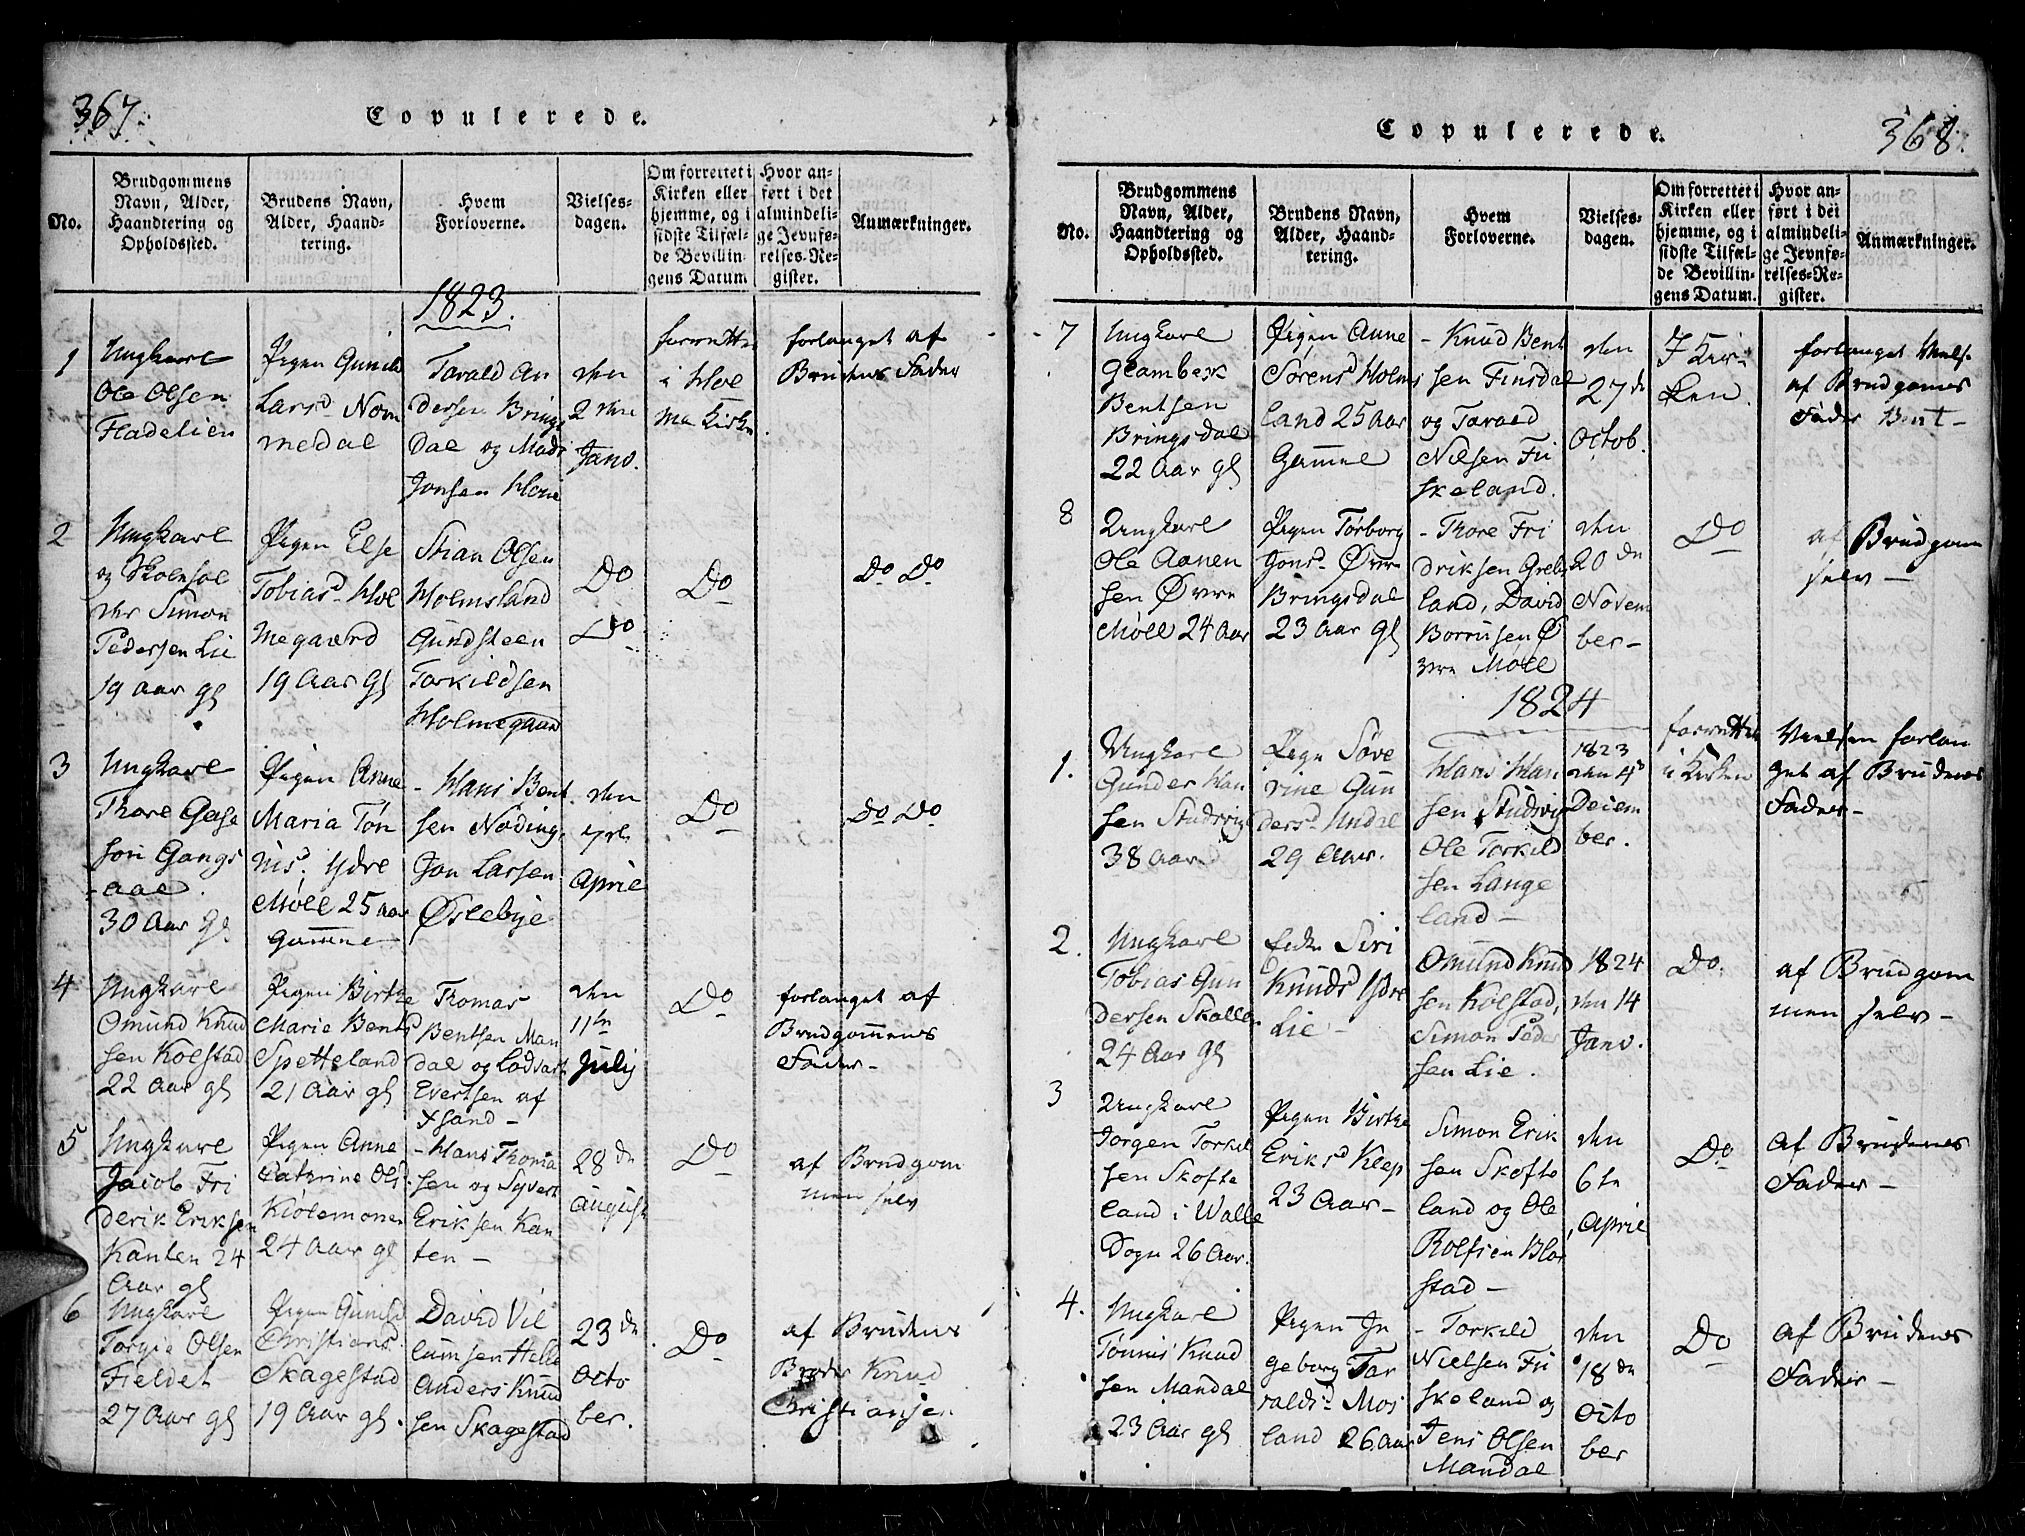 367.
Copulerede.
No.
Brudgommens
Navn, Alder,
Haandtering og
Opholdssted.
Brudens Navn,
Alder, Haand-
tering.
Hvem
Forloverne.
Vielses-
dagen.
Om forrettet i
Kirken eller
hjemme, og i
sidste Tilfæl-
de Bevillin-
gens Datum
Hvor an-
ført i det
almindeli-
ge Jevnfø-
relses-Re-
gister.
Anmærkninger.
1823.
1
Ungkarl
Ole Olsen
Fladelien
Pigen Gunild
Larsd Nom
medal
Tarald An
dersen Brings
Dal og Mads
Jonsen Home
den
2den
Janv.
forrettet
i Hol
ma Kirke
forlanget af
Brudens Fader
2
Ungkarl
og Skolehol
der Simon
Pedersen Lie
19 aar gl
Pigen Else
Tobiasd Hol
megaard
19 Aar gl
Stian Olsen
Holmsland
Gundsteen
Torkildsen
Holmegaard
Do
Do
Do
Do Do
3
Ungkarl
Thore Gase
sen Gangs
aae.
30 Aar gl.
Pigen Anne
Maria Tøn
nisd. Ydre
Møll 25 aar
Gamme
- Hans Bent
sen Nøding,
Jon Larsen
Øslebye
den
April
Do
Do Do
4
Ungkarl
Omund Knud
sen Kolstad
22 Aar gl
Pigen Birthe
Marie Bentsd
Spetteland
21 Aar gl
Thomas
Bentsen Man
dal og Ladvart
Evertsen af
Xsand -
den
11te
Julij
Do
forlanget af
Brudgommens
Fader -
5
Ungkarl
Jacob Fri
derik Eriksen
Kanten 24
Aar gl
Pigen Anne
Cathrine Olsd
Kiølemonen
24 Aar gl
- Hans Thoma
sen og Syvert
Eriksen Kan
ten -
28de
August
Do
af Brudgom
men selv
6
Ungkarl
Torgie Olsen
Fieldet
27 Aar gl
Pigen Gunild
Christiansd
Skagestad
19 Aar gl.
David Vil
lumsen Helle
Anders Knud
sen Skagestad
23de
Octo
ber.
Do
af Brudens
Broder Knud
Christiansen
368.
Copulerede.
No.
Brudgommens
Navn, Alder,
Haandtering og
Opholdssted.
Brudens Navn,
Alder, Haand-
tering.
Hvem
Forloverne.
Vielses-
dagen.
Om forrettet i
Kirken eller
hjemme, og i
sidste Tilfæl-
de Bevillin-
gens Datum.
Hvor an-
ført i det
almindeli-
ge Jevnfø-
relses-Re-
gister.
Anmærkninger.
7
Ungkarl
Glambek
Bentsen
Bringsdal
22 Aar gl
Pigen Anne
Sørensd Holms
land 25 aar
Gammel
- Knud Bent
sen Finsdal
og Tarald
Nilsen Fu
skeland.
den
27de
Octob.
I Kir-
ken.
forlanget Viels.
af Brudgomes
Fader Bent -
8
Ungkarl
Ole Aanen
sen Øvre
Møll 24 Aar
Pigen Tørborg
Jonsd Øvre
Bringsdal
23 Aar gl
- Thore Fri
driksen Greb
land, David
Borrusen Ø
vre Møll
den
20de
Novem
ber -
Do
af Brudgom
selv -
1824
1.
Ungkarl
Gunder Han
sen Studsvig
38 Aar
Pigen Søve
rine Gun
dersd Undal
29 Aar.
Hans Han
sen Studsvig
Ole Torkild
sen Lange
land -
1823
den 4de
Decem
ber.
forrettet
i Kirken
Vielsen forlan
get af Brudens
Fader -
2.
Ungkarl
Tobias Gun
dersen Skalle
24 Aar gl
Siri
Knudsd Ydre
Lie -
Omund Knud
sen Kolstad,
Simon Peder
sen Lie.
1824
den 14
Janv.
Do.
af Brudgom
men selv -
3
Ungkarl
Jorgen Torkil
sen Skofte
land i Walle
Sogn 26 Aar.
Pigen Birthe
Eriksd Klep
23 Aar -
Simon Erik
sen Skofte
land og Ole
Rolfsen Bloe
stad -
den
6te
April
Do
af Brudens
Fader -
4.
Ungkarl
Tønnis Knud
sen Mandal
23 Aar gl
Pigen In
geborg Tar
raldsd Mos
land 26 Aar
- Torkild
Nielsen Fu
skeland og
Jens Olsen
Mandal
den
18de
Octo
ber
Do
af Brudens
Fader -